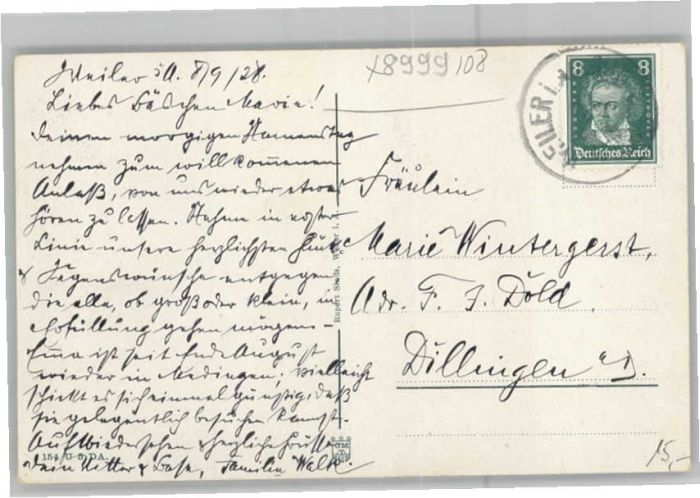 Weiler i/A. 8/9/28.
Liebes Bäschen Marie!
Deinen morgigen Namenstag
nehmen zum willkommenen
Anlaß, von uns wieder etwas
hören zu lassen. Nehme in erster
Linie unsere herzlichsten Glück-
& Segenswünsche entgegen
die alle, ob groß oder klein, in
Erfüllung gehen mögen –
Emma ist seit Ende August
wieder in Medingen, vielleicht
schickt es sich einmal günstig, daß
sie gelegentlich besuchen kannst.
Auf Wiedersehen & herzliche Grüsse
Dein Vetter & Base, Familie Walk.
154 U 5 DA.
x8999/08
8 8
Deutsches Reich
WEILER i. A
Fräulein
Marie Wintergerst,
Adr. F. J. Dold.
Dillingen a/D.
15,-